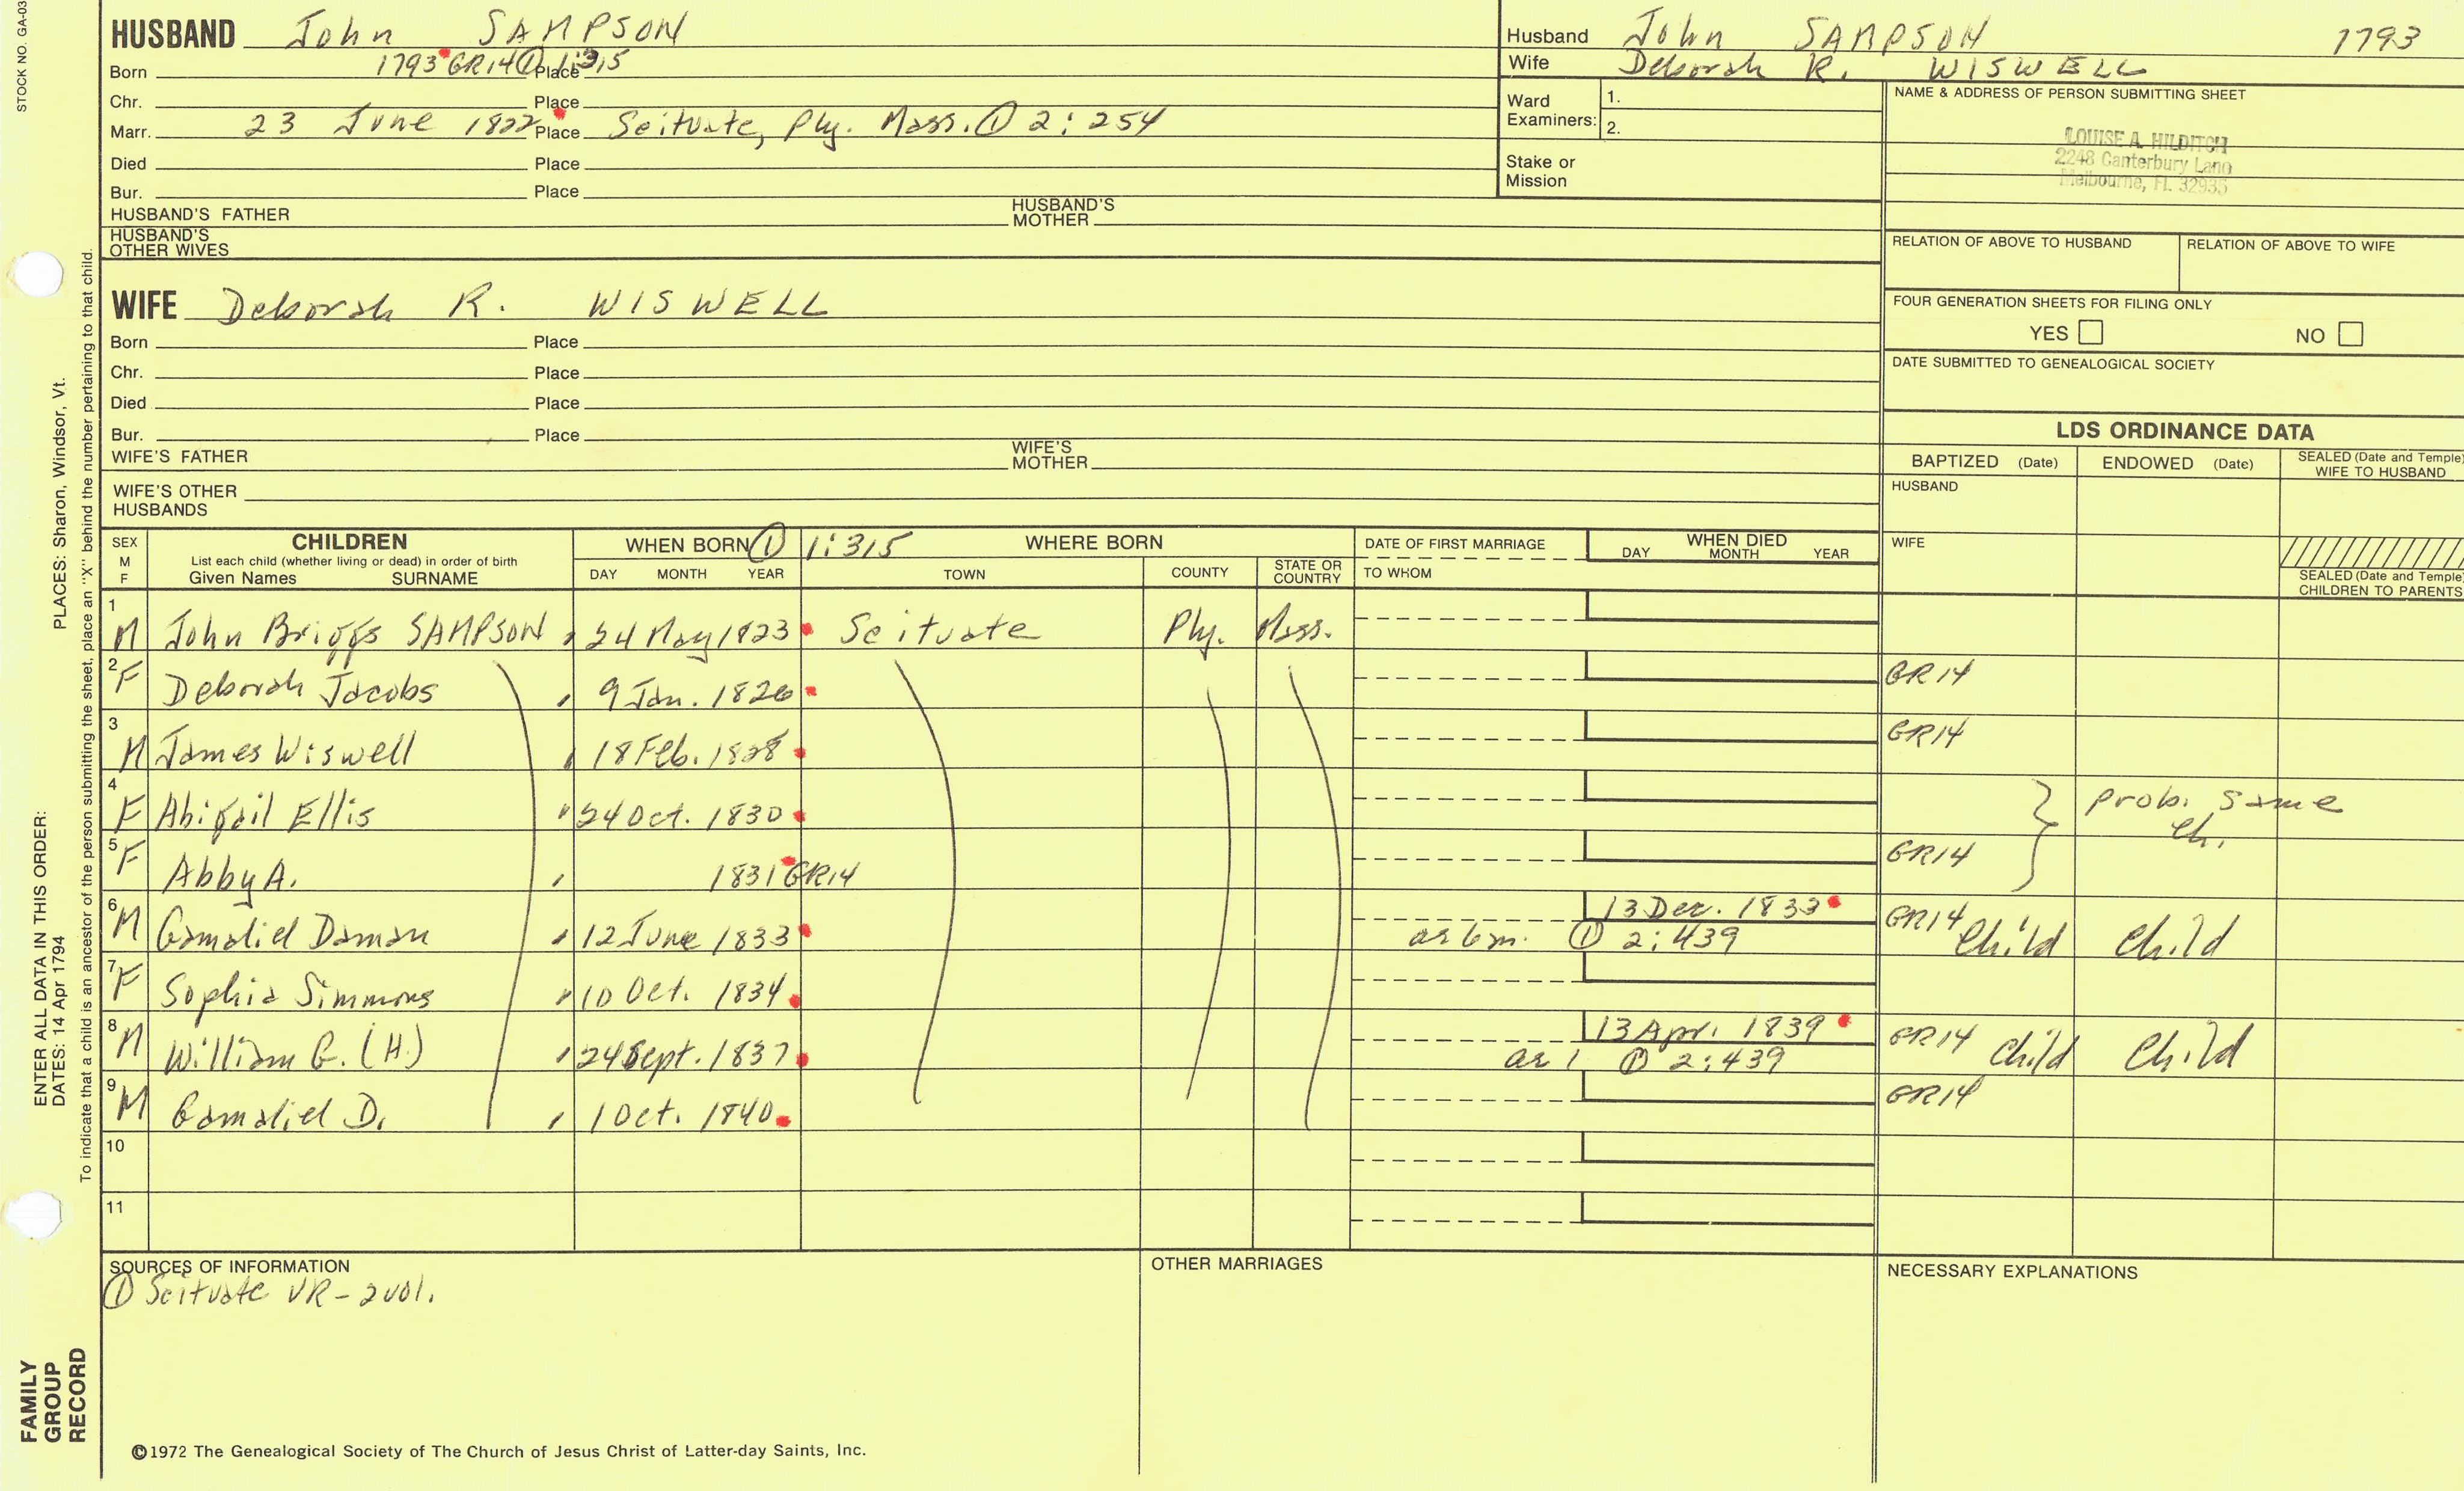 STOCK NO. GA-03
HUSBAND John SAMPSON
Born 1793 GR14 ① Place 1:315
Chr. Place
Marr. 23 June 1822 Place Scituate, Ply. Mass. ① 2:254
Died Place
Bur. Place
HUSBAND'S FATHER HUSBAND'S MOTHER
HUSBAND'S OTHER WIVES
Husband John SAMPSON 1793
Wife Deborah R. WISWELL
Ward Examiners: 1.
2.
Stake or Mission
NAME & ADDRESS OF PERSON SUBMITTING SHEET
LOUISE A. HILDITCH
2248 Canterbury Lane
Melbourne, FL 32935
RELATION OF ABOVE TO HUSBAND RELATION OF ABOVE TO WIFE
FOUR GENERATION SHEETS FOR FILING ONLY
YES NO
DATE SUBMITTED TO GENEALOGICAL SOCIETY
WIFE Deborah R. WISWELL
Born Place
Chr. Place
Died Place
Bur. Place
WIFE'S FATHER WIFE'S MOTHER
WIFE'S OTHER HUSBANDS
LDS ORDINANCE DATA
BAPTIZED (Date) ENDOWED (Date) SEALED (Date and Temple) WIFE TO HUSBAND
HUSBAND
WIFE
SEALED (Date and Temple) CHILDREN TO PARENTS
SEX M F CHILDREN WHEN BORN ① 1:315 WHERE BORN DATE OF FIRST MARRIAGE WHEN DIED
List each child (whether living or dead) in order of birth
Given Names SURNAME DAY MONTH YEAR TOWN COUNTY STATE OR COUNTRY TO WHOM DAY MONTH YEAR
1 M John Briggs SAMPSON 24 May 1823 Scituate Ply. Mass.
2 F Deborah Jacobs 9 Jan. 1826 GR14
3 M James Wiswell 18 Feb. 1828 GR14
4 F Abigail Ellis 24 Oct. 1830 } prob. same ch.
5 F Abby A. 1831 GR14 GR14
6 M Gamaliel Daman 12 June 1833 13 Dec. 1833 as 6 m. ① 2:439 GR14 Child Child
7 F Sophia Simmons 10 Oct. 1834
8 M William G. (H.) 24 Sept. 1837 13 Apr. 1839 as 1 ① 2:439 GR14 Child Child
9 M Gamaliel D. 1 Oct. 1840 GR14
10
11
SOURCES OF INFORMATION OTHER MARRIAGES NECESSARY EXPLANATIONS
① Scituate VR - 2 vol.
©1972 The Genealogical Society of The Church of Jesus Christ of Latter-day Saints, Inc.
FAMILY GROUP RECORD
ENTER ALL DATA IN THIS ORDER:
DATES: 14 Apr 1794
PLACES: Sharon, Windsor, Vt.
To indicate that a child is an ancestor of the person submitting the sheet, place an "X" behind the number pertaining to that child.